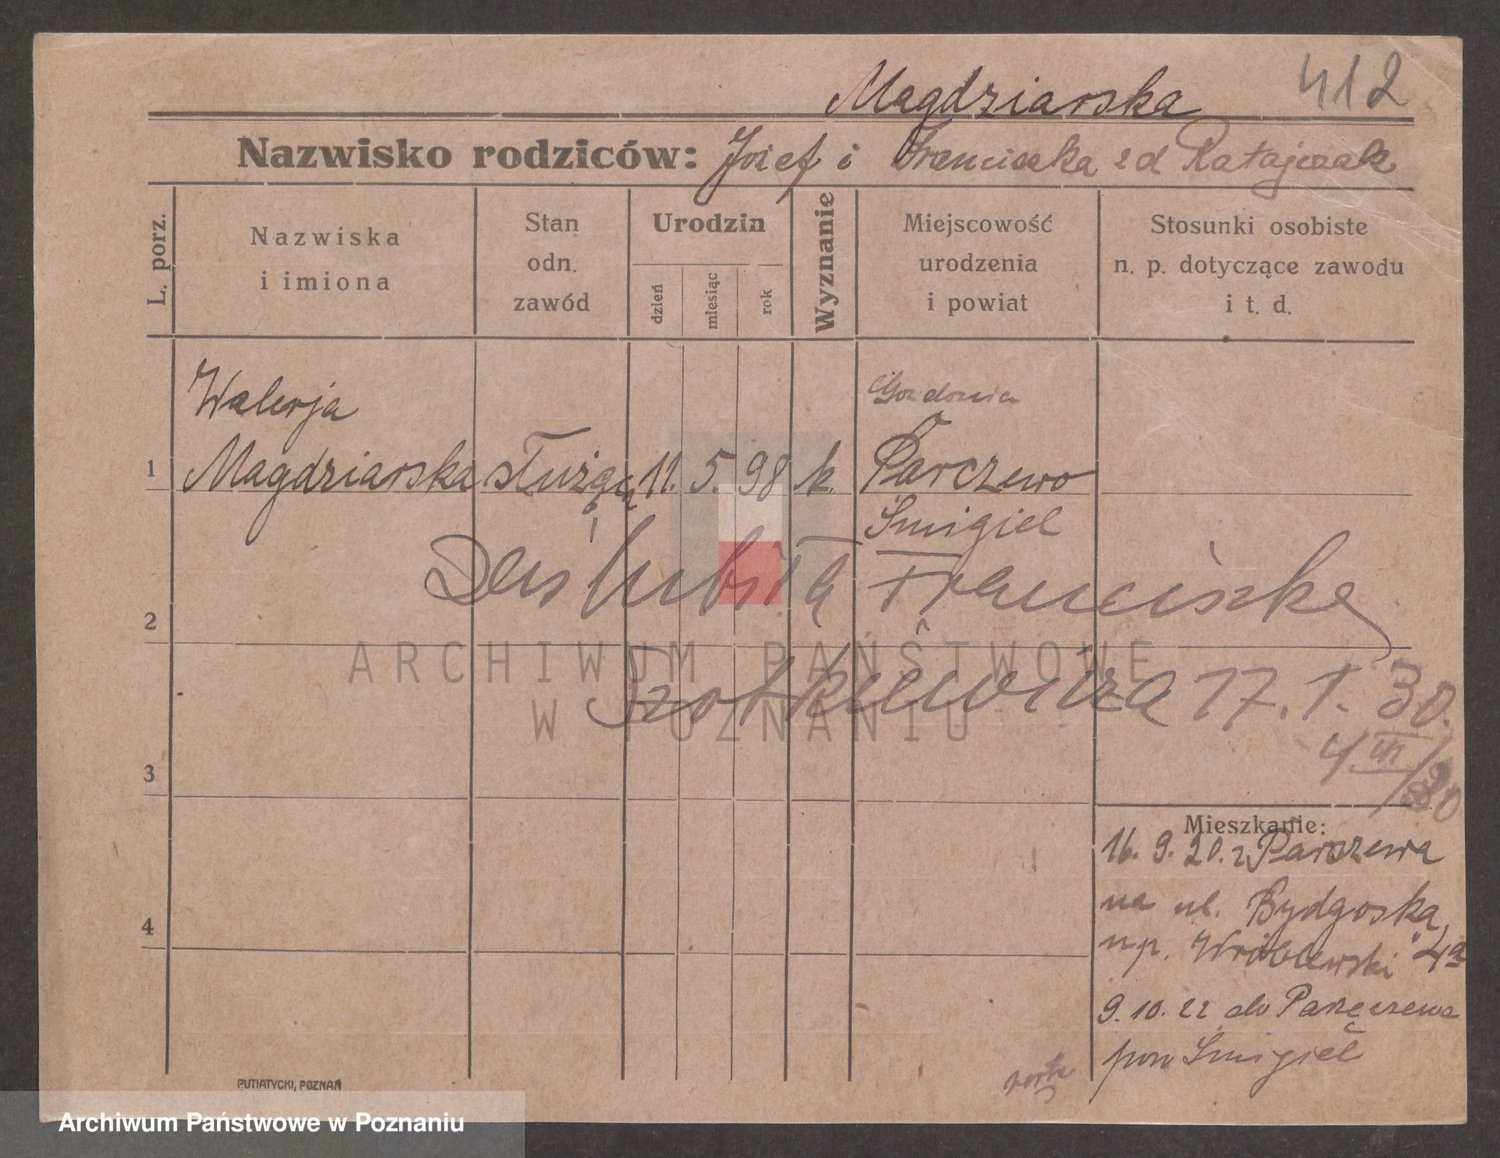 Magdziarska 412
Nazwisko rodziców: Józef i Franciszka zd Ratajczak
L. porz.
Nazwiska
i imiona
Stan
odn.
zawód
Urodzin
dzień
miesiąc
rok
Wyznanie
Miejscowość
urodzenia
i powiat
Stosunki osobiste
n. p. dotyczące zawodu
i t. d.
Walerja
1 Magdziarska służąc 11. 5. 98 k. Parczewo
Śmigiel
2 Zaślubiła Franciszka
ARCHIWUM PAŃSTWOWE
W POZNANIU
Szotkiewicza 17. 1. 30.
4/III/30
3
Mieszkanie:
16. 9. 20. z Parszewa
na ul. Bydgoską
4 np. Wróblewski 4a
9. 10. 22 do Parzęczewa
pow Śmigiel
PUTIATYCKI, POZNAŃ
Archiwum Państwowe w Poznaniu